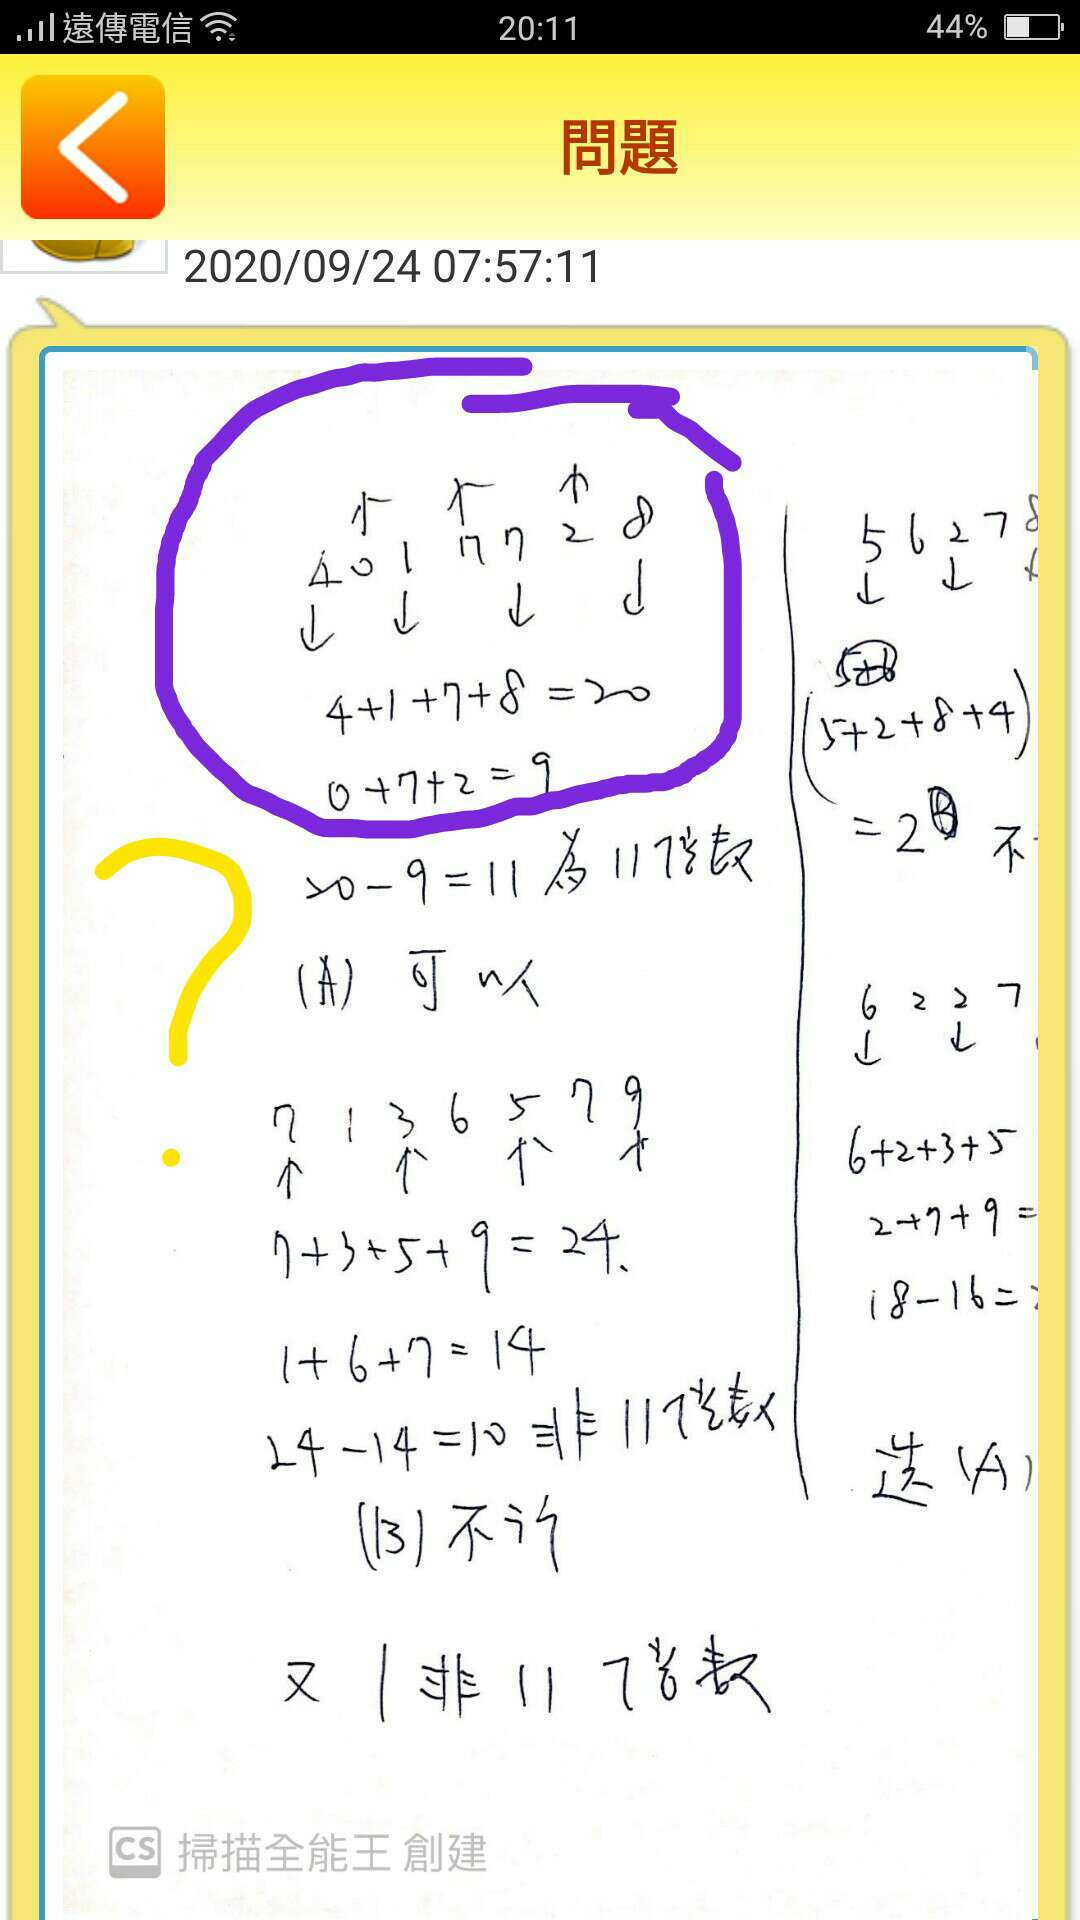 遠傳電信 20:11 44%
問題
2020/09/24 07:57:11
4 0 1 7 7 2 8
4+1+7+8=20
0+7+2=9
20-9=11 為 11 倍數
(A) 可以
7 1 3 6 5 7 9
7+3+5+9=24
1+6+7=14
24-14=10 非 11 倍數
(B) 不行
又 1 非 11 倍數
5 6 2 7 8
(5+2+8+4)
=2
不
6 2 2 7
6+2+3+5
2+7+9=
18-16=
選 (A)
CS 掃描全能王 創建